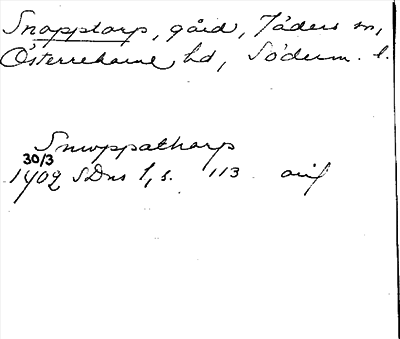 Snapptorp, gård, Jäders sn,
Österrekarne hd, Söderm. l.
Snwppatharp
30/3
1402 SDns 1, s. 113 avs